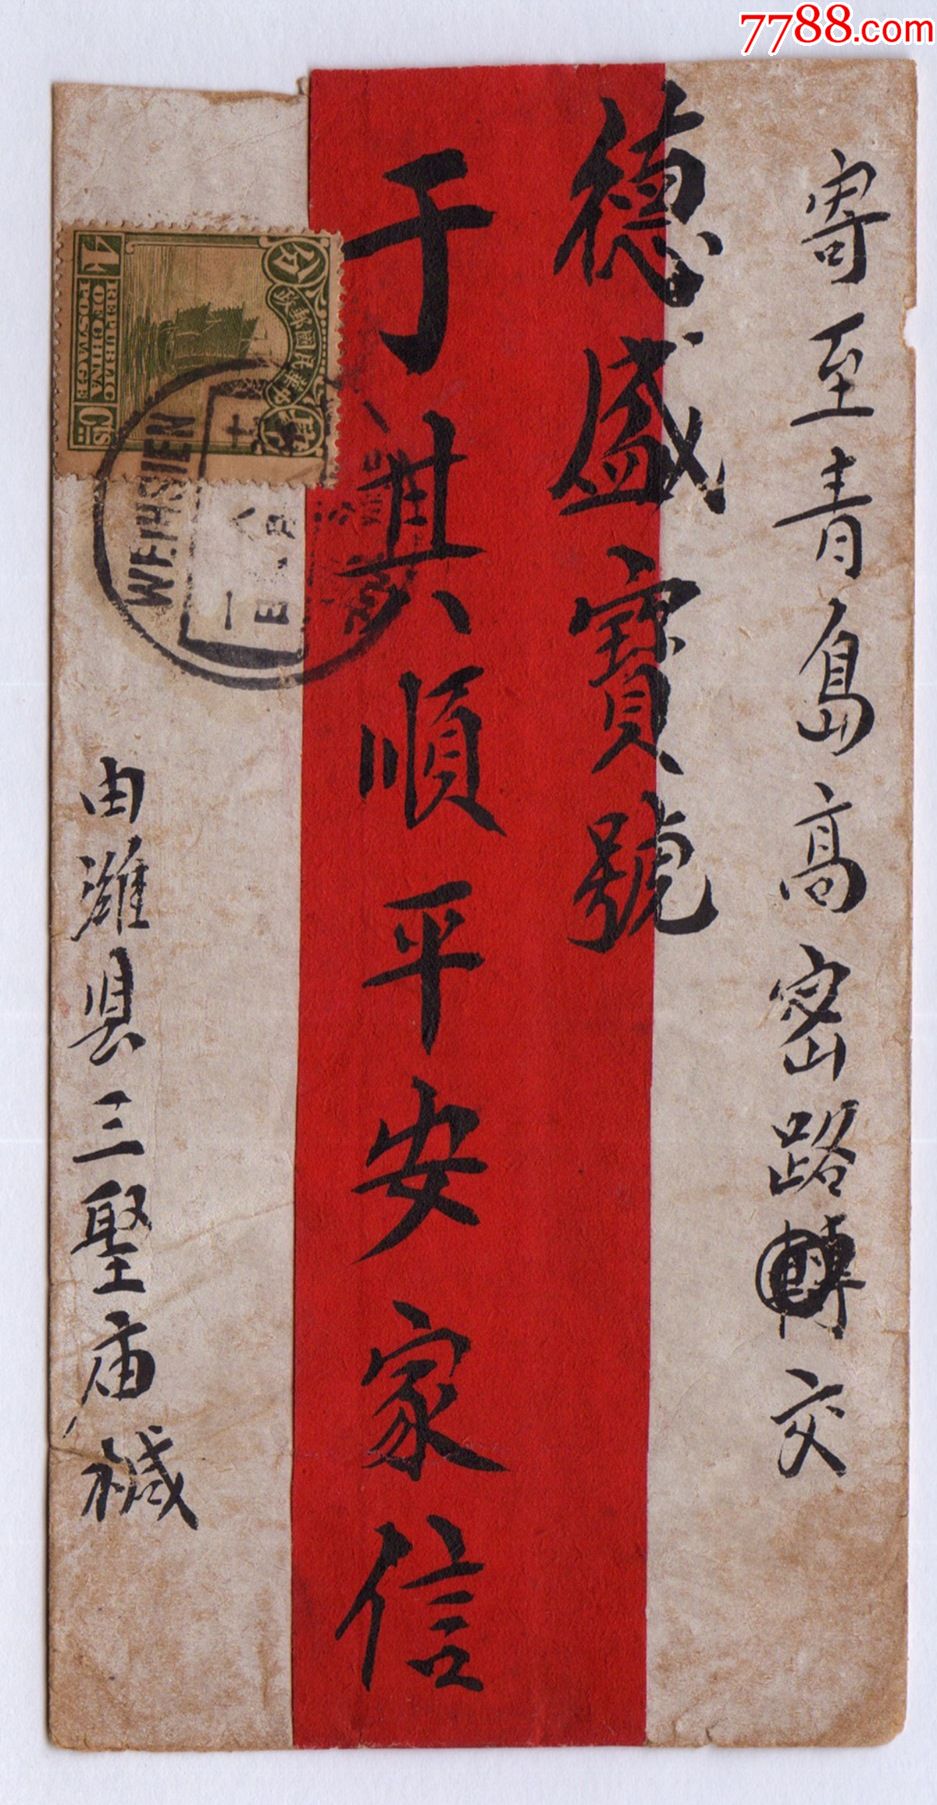 7788.com
寄至青島高密路轉交
德盛寶號
于其順平安家信
由濰县三聖庙椷
中華民國郵政
肆分
4 Cts
REPUBLIC
OF CHINA
POSTAGE
WEIHSIEN